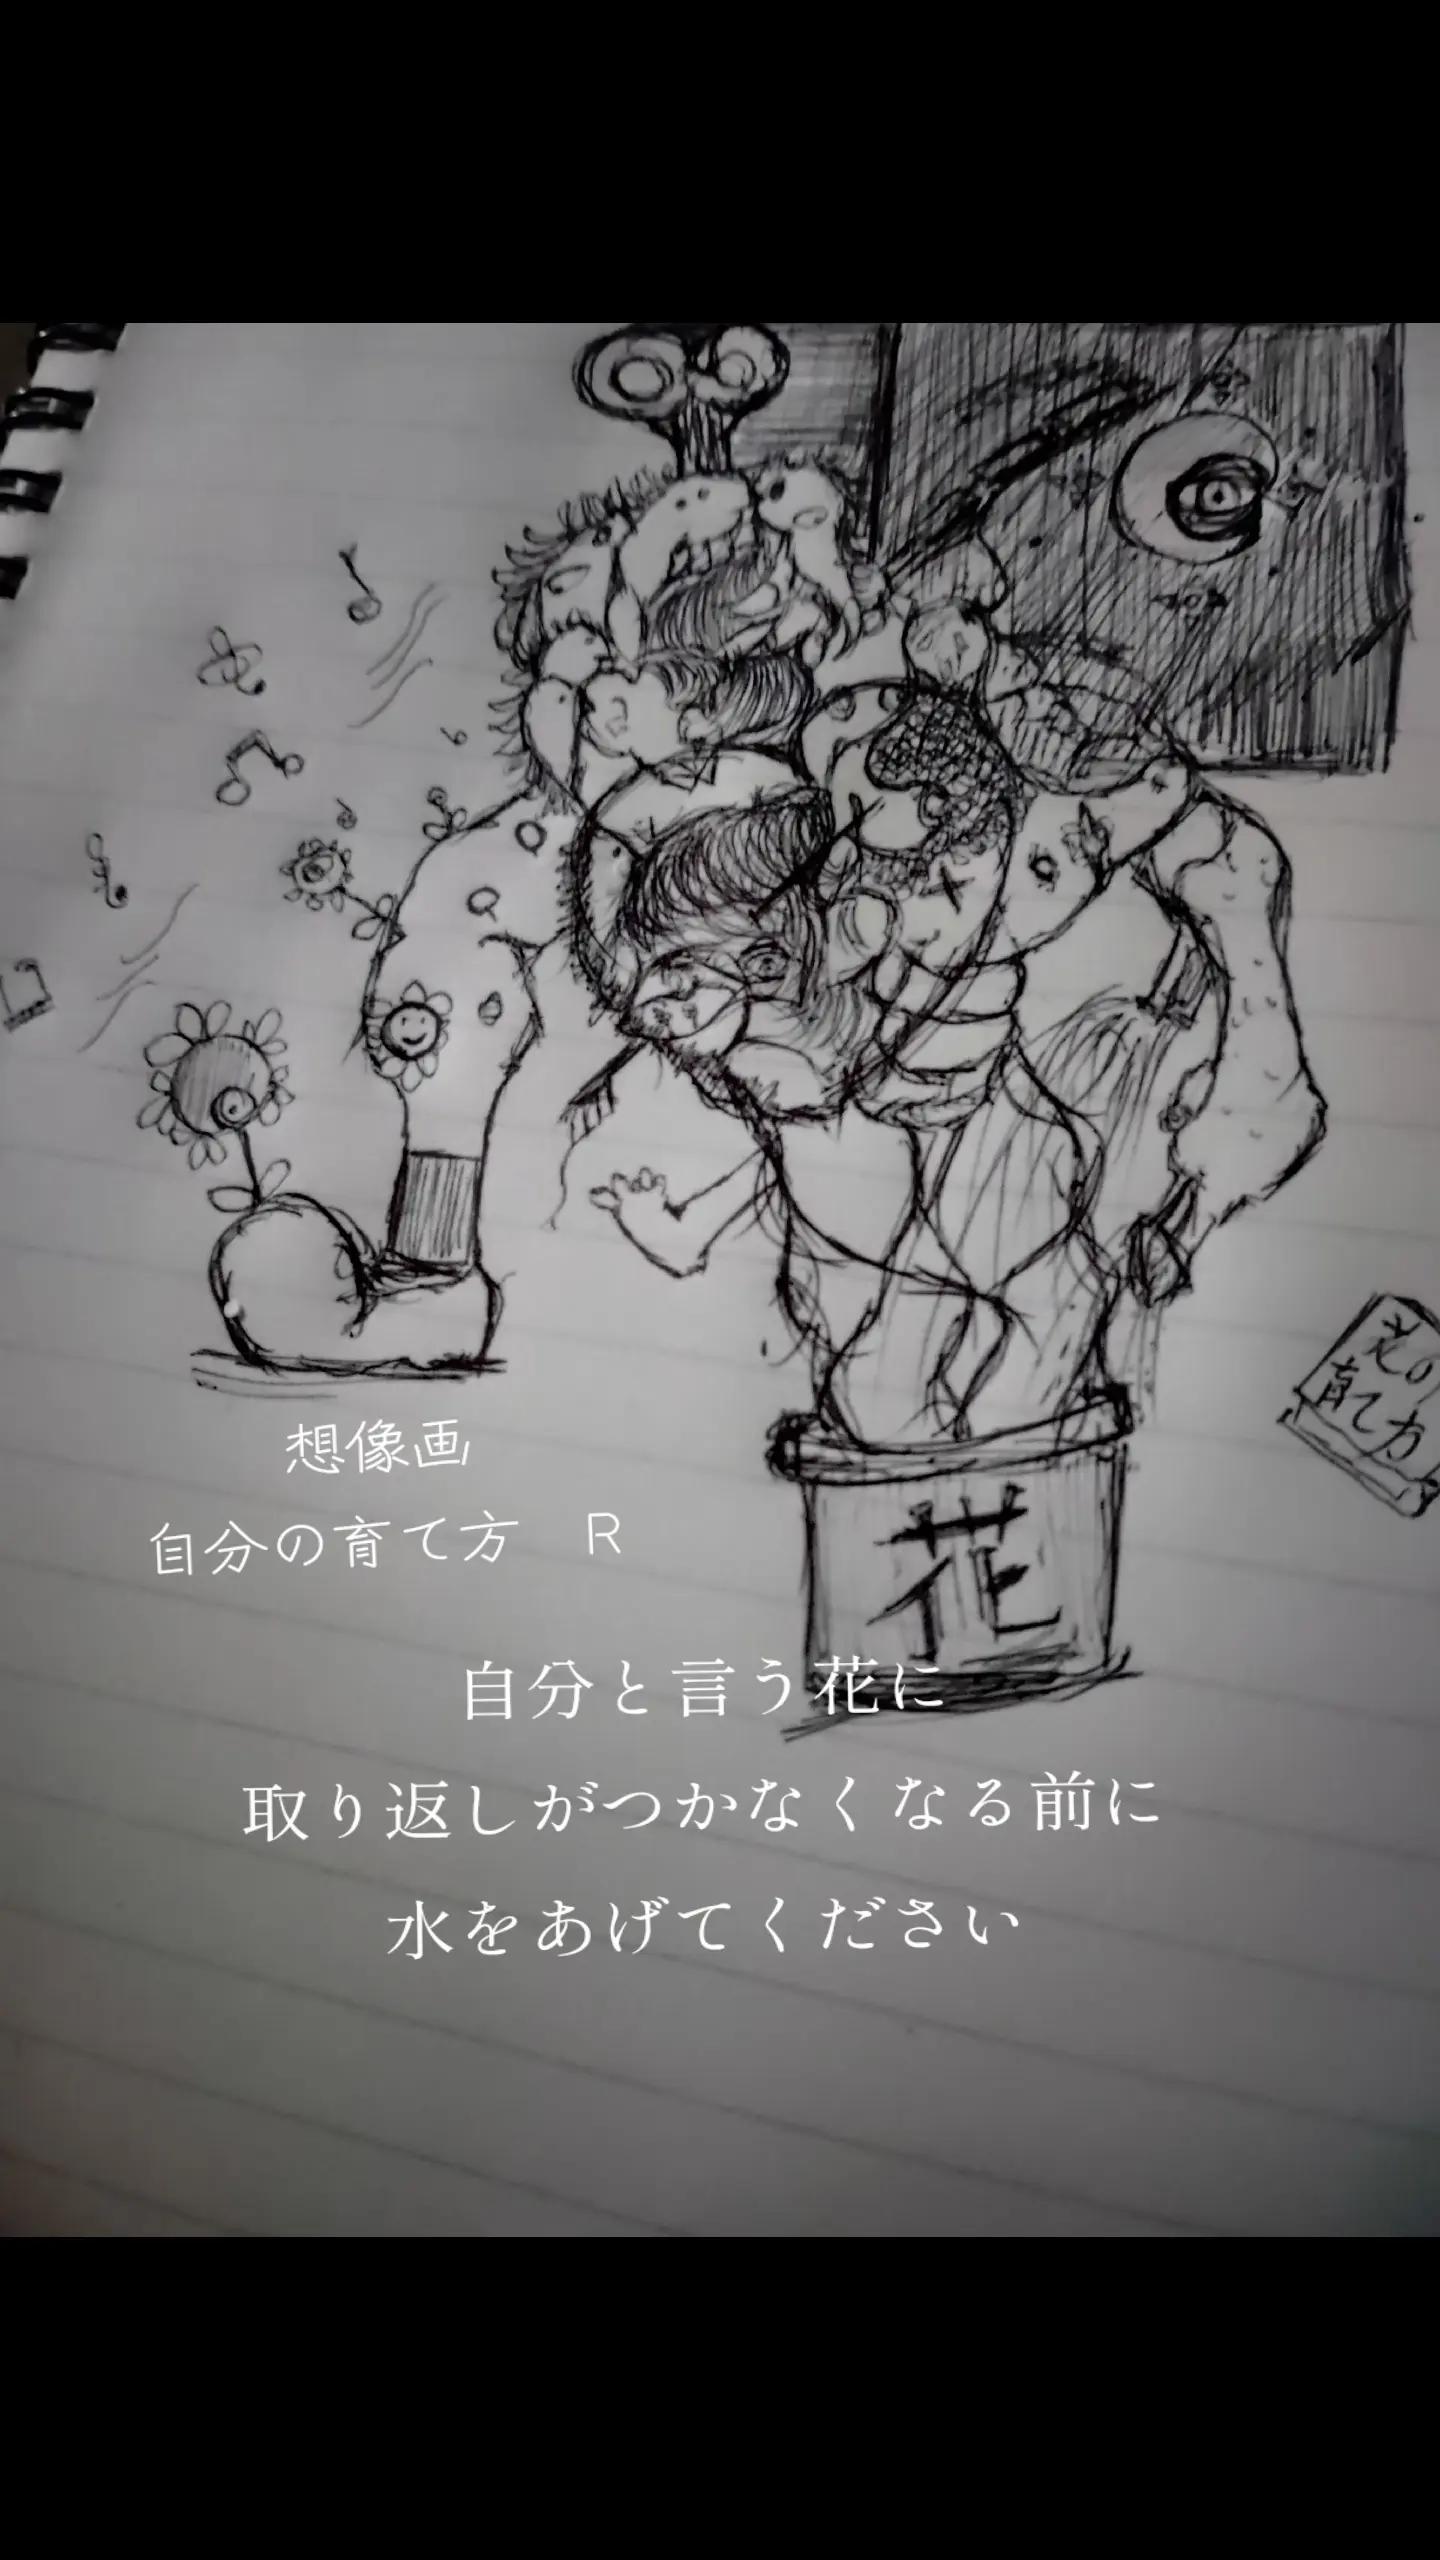 花の
育て方
花
想像画
自分の育て方 R
自分と言う花に
取り返しがつかなくなる前に
水をあげてください